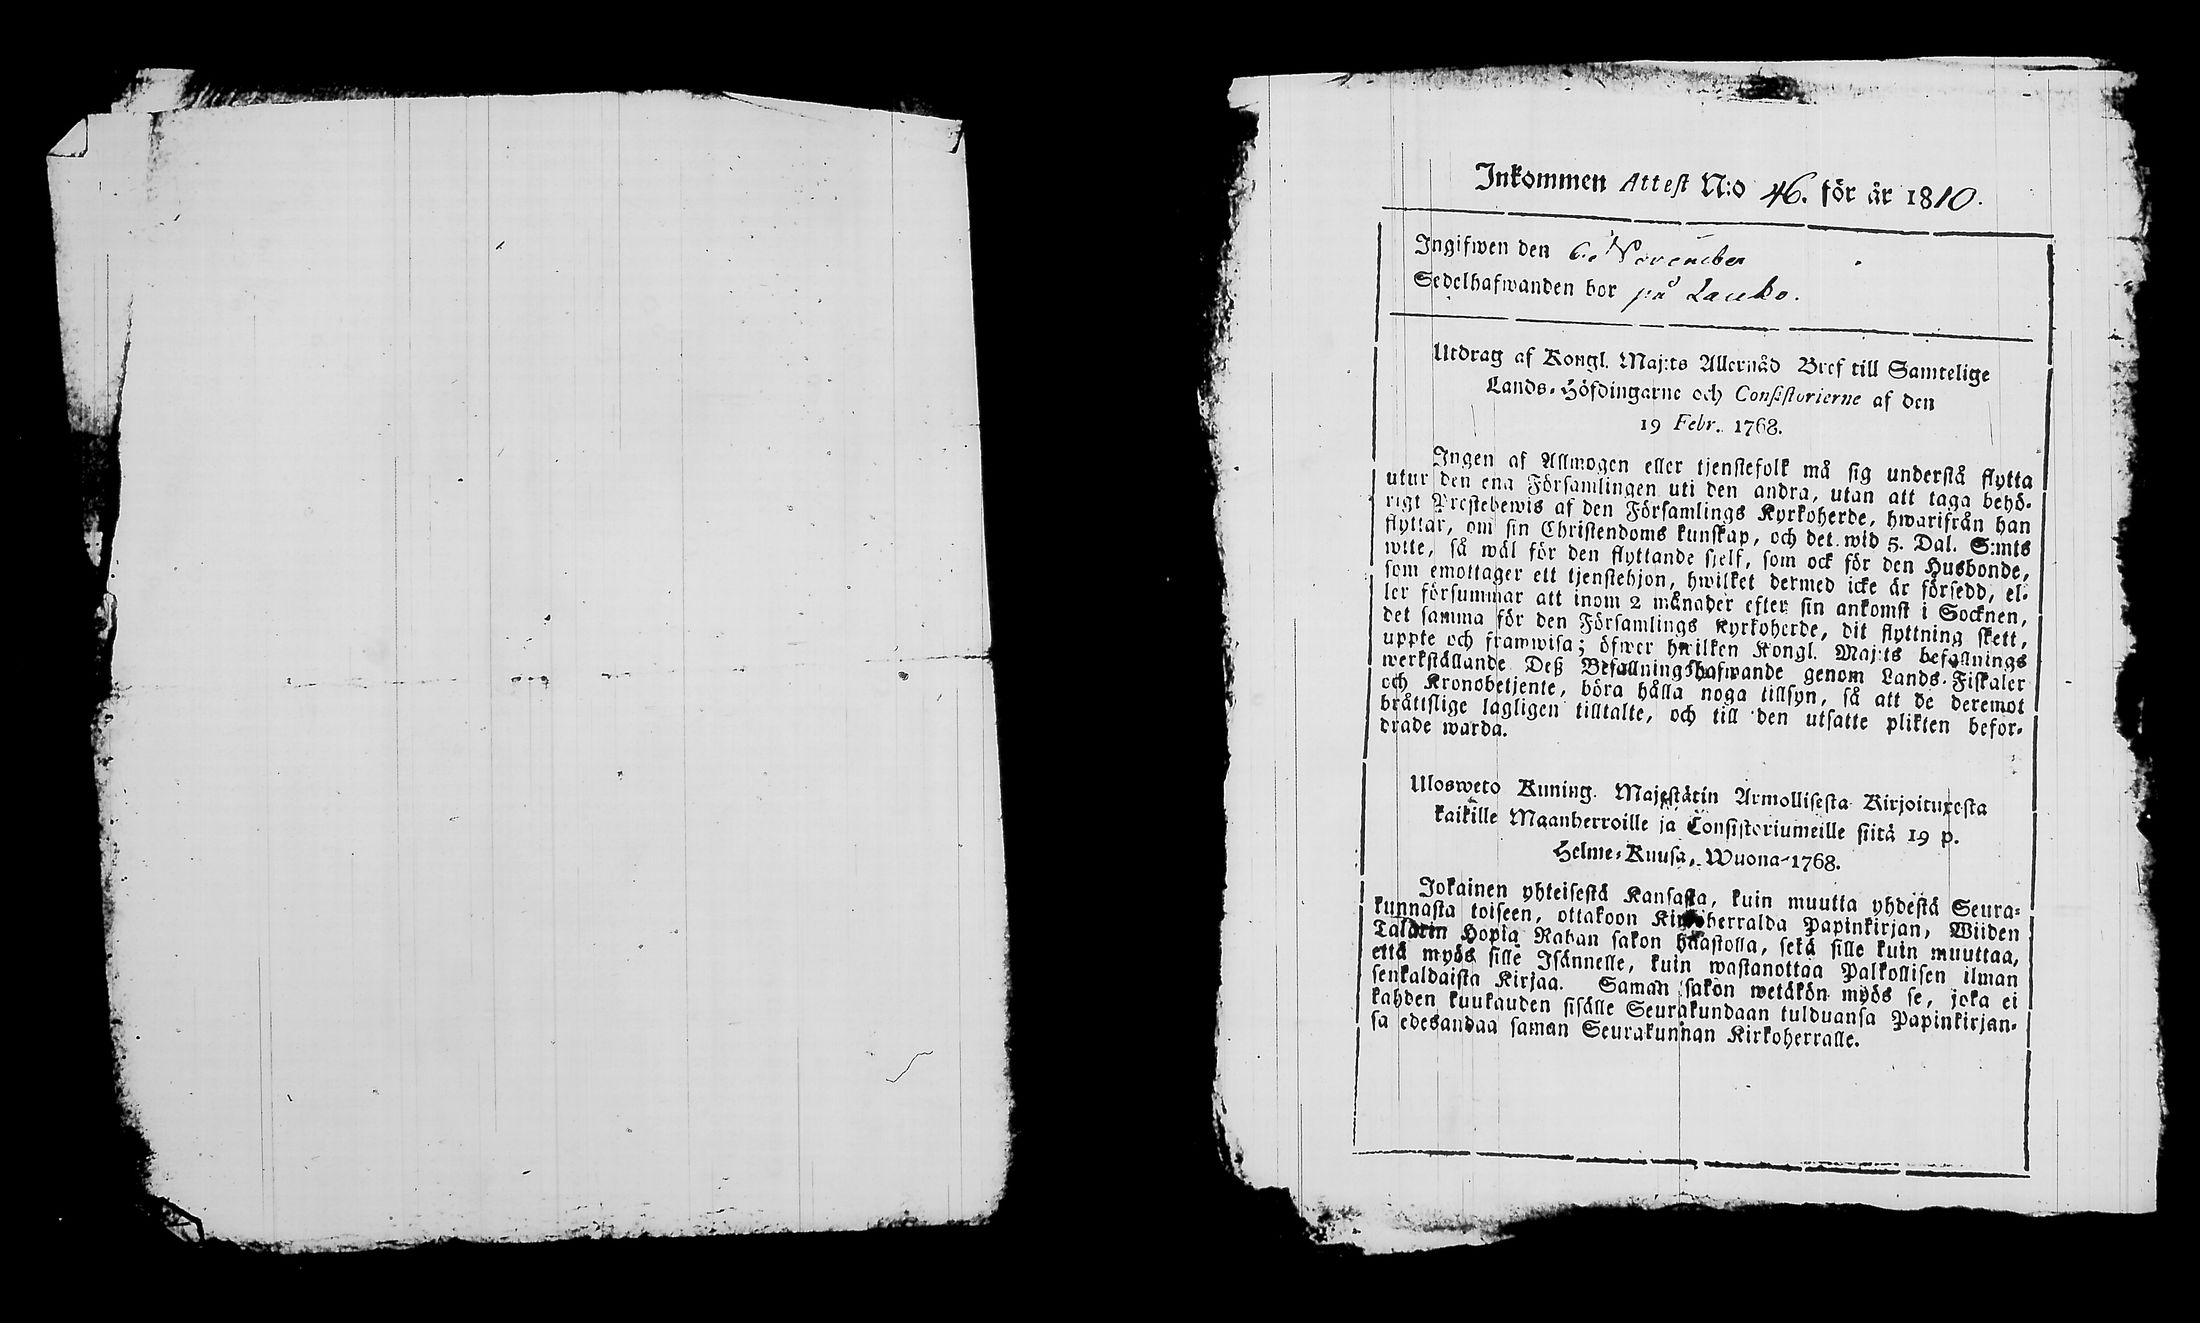 Inkommen Attest N:o 46. för år 1810.
Ingifwen den 6. November
Sedelhafwanden bor på Lauko.
Utdrag af Kongl. Maj:ts Allernåd Bref till Samtelige
Lands-Höfdingarne och Consistorierne af den
19 Febr. 1768.
Ingen af Allmogen eller tjenstefolk må sig understå flytta
utur den ena Församlingen uti den andra, utan att taga behö-
rigt Prestebewis af den Församlings Kyrkoherde, hwarifrån han
flyttar, om sin Christendoms kunskap, och det wid 5. Dal. S:mts
wite, så wäl för den flyttande sielf, som ock för den Husbonde,
som emottager ett tjenstehjon, hwilket dermed icke är försedd, el-
ler försummar att inom 2 månader efter sin ankomst i Socknen,
det samma för den Församlings Kyrkoherde, dit flyttning skett,
uppte och framwisa; öfwer hwilken Kongl. Maj:ts befallnings
werkställande Deß Befallningshafwande genom Lands-Fiskaler
och Kronobetjente, böra hålla noga tillsyn, så att de deremot
bråttslige lagligen tilltalte, och till den utsatte plikten befor-
drade warda.
Ulosweto Kuning. Majestätin Armollisesta Kirjoituxesta
kaikille Maanherroille ja Consistoriumeille siitä 19 p.
Helme-Kuusa, Wuona 1768.
Jokainen yhteisestä Kansasta, kuin muutta yhdestä Seura-
kunnasta toiseen, ottakoon Kirkoherralda Papinkirjan, Wiiden
Talarin Hopia Rahan sakon haastolla, sekä sille kuin muuttaa,
että myös sille Isännelle, kuin wastanottaa Palkollisen ilman
senkaldaista Kirjaa. Saman sakon wetäkön myös se, joka ei
kahden kuukauden sisälle Seurakundaan tulduansa Papinkirjan-
sa edesandaa saman Seurakunnan Kirkoherralle.